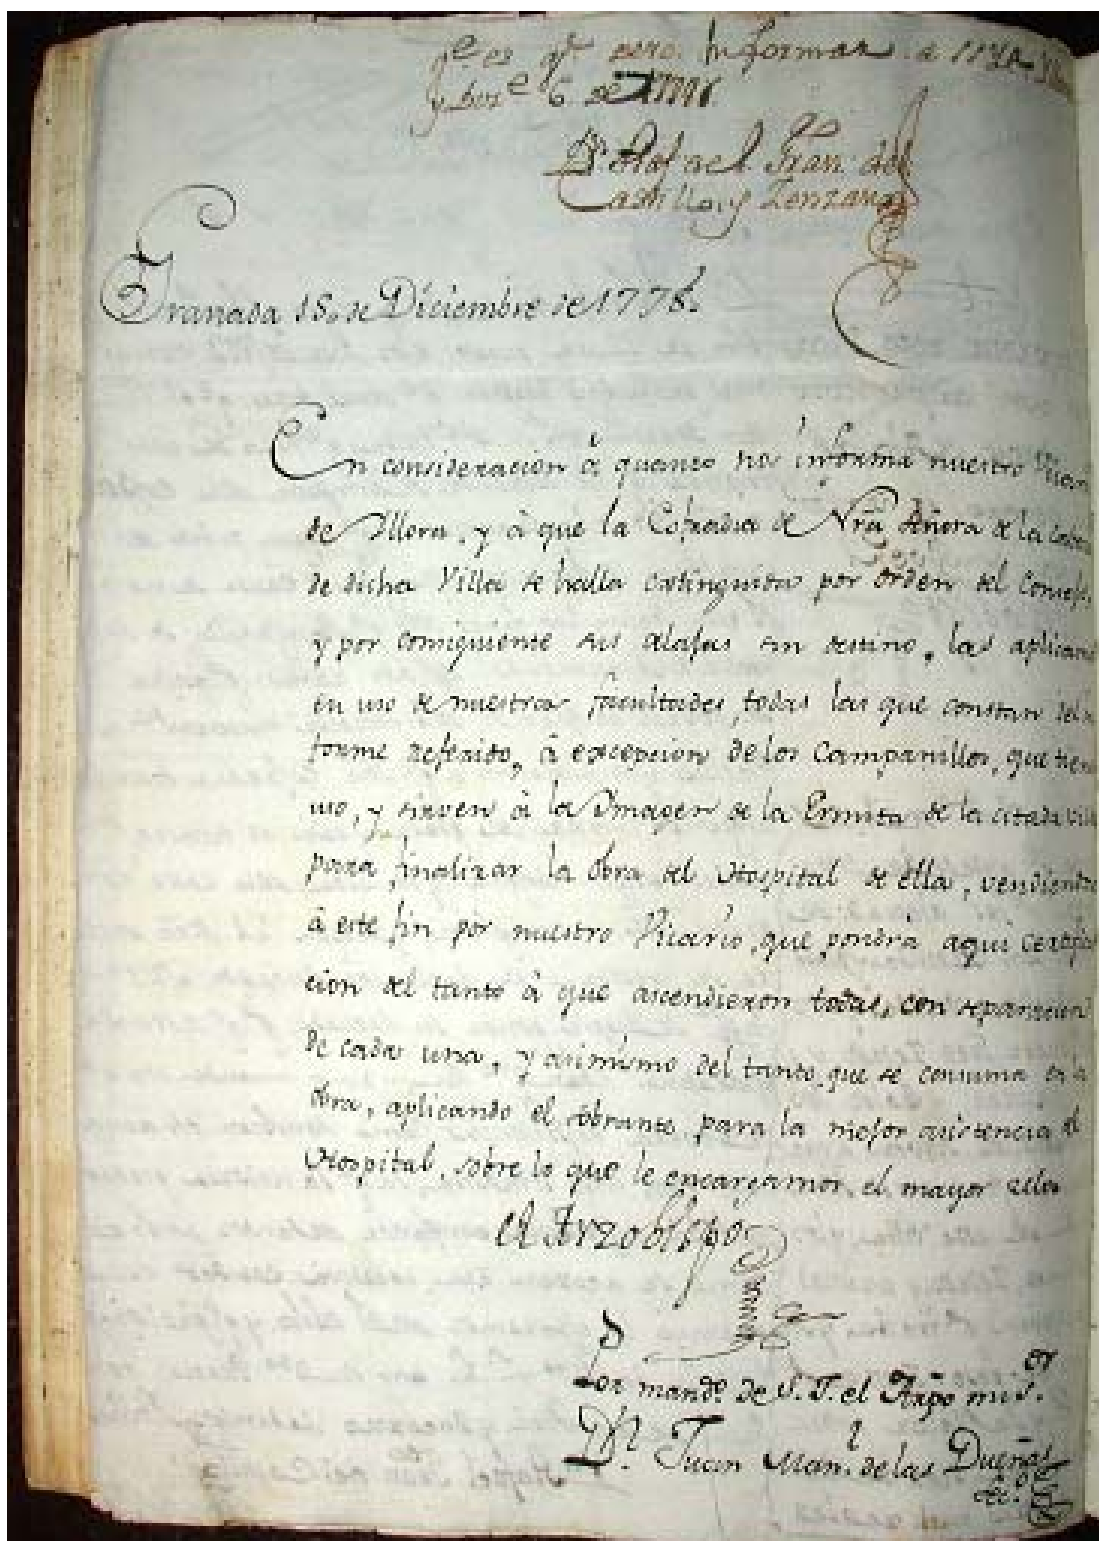 q.e es q.to devo Informar a
y Dez.e 6 de 1776.
D.r Rafael Fran.co del
Castillo, y Lenzana
Granada 18. de Diciembre de 1776.
En consideracion â quanto nos informa nuestro Vicari
de Yllora, y â que la Cofradia de Nrã Señora de la Cabe
de dicha Villa se halla extinguida por orden del Consejo,
y por consiguiente sus alajas sin destino, las aplicamo
en uso de nuestras facultades, todas las que constan del in
forme referido, â excepcion de los Campanillos, que tiene
uso, y sirven â la Ymagen de la Ermita de la citada Villa
para finalizar la obra del Hospital de ella, vendiendo
â este fin por nuestro Vicario, que pondrà aqui certifica
cion del tanto â que ascendieron todas, con separacion
de cada una, y asimismo del tanto que se consuma en la
obra, aplicando el sobrante para la mejor asistencia del
Hospital, sobre lo que le encargamos el mayor zelo.
el Arzobispo
Por mand.o de S. I. el Arzpo mi s.or
D.n Juan Man.l de las Dueñas
Sec.o